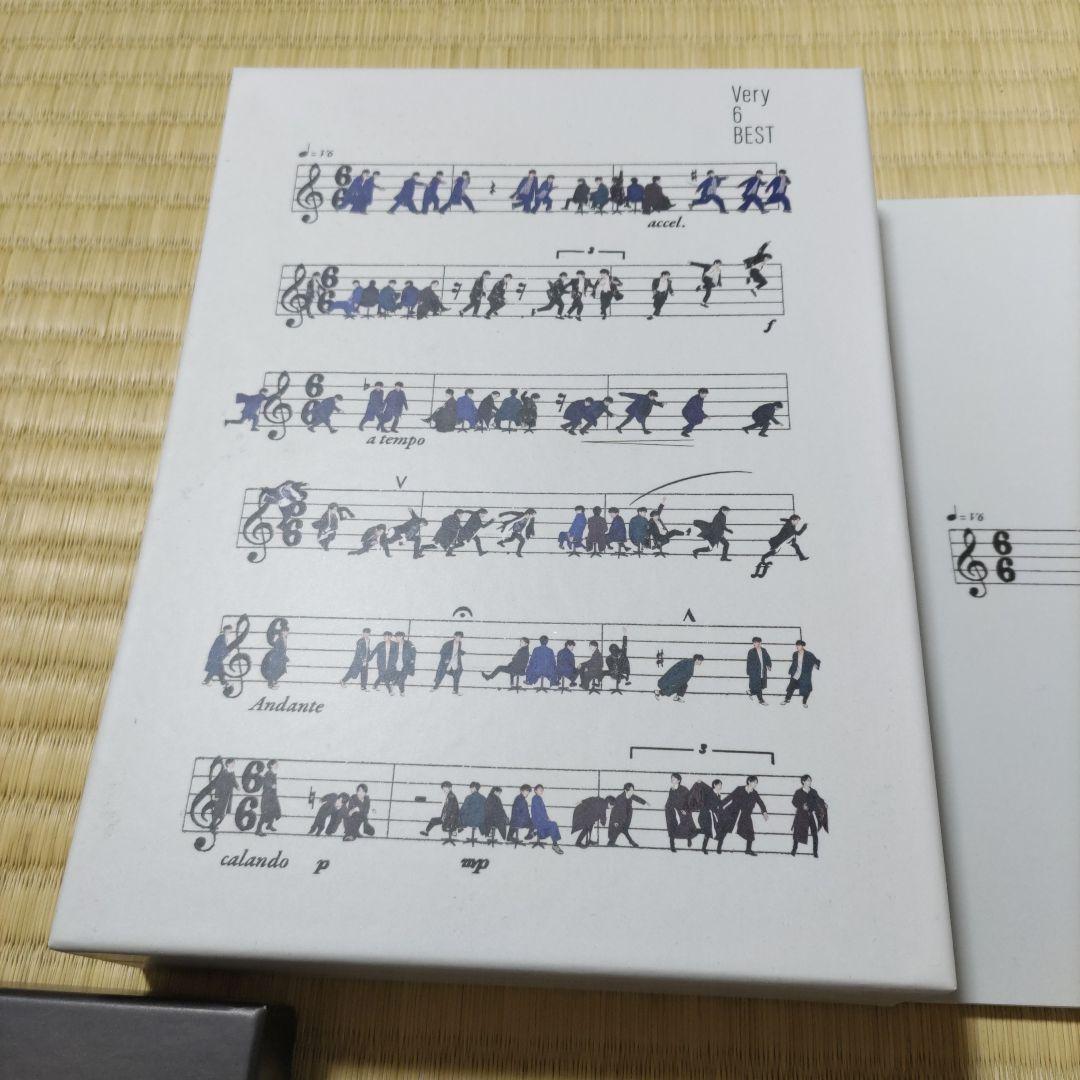 Very
6
BEST
6
6
accel.
3
6
6
f
6
6
a tempo
6
6
ff
6
6
Andante
3
6
6
calando p mp
6
6